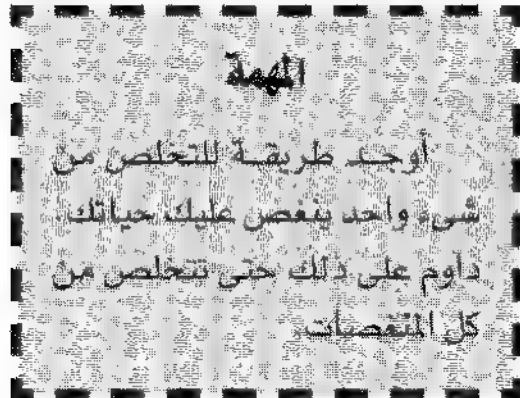 المهمة
أوجد طريقة للتخلص من
شيء واحد ينغص عليك حياتك.
داوم على ذلك حتى تتخلص من
كل المنغصات.